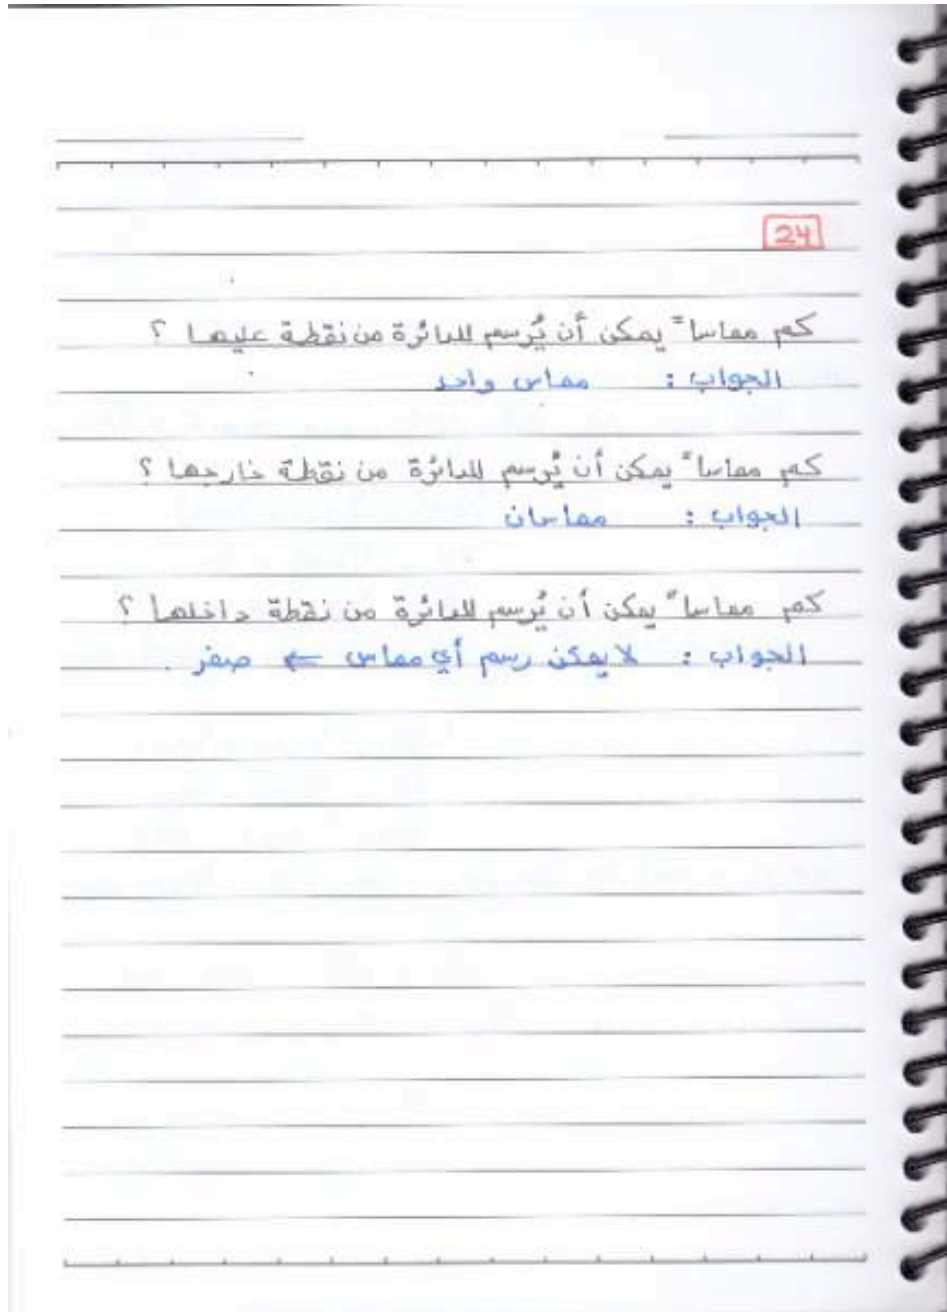 24
كم مماساً يمكن أن يُرسم للدائرة من نقطة عليها ؟
الجواب : مماس واحد
كم مماساً يمكن أن يُرسم للدائرة من نقطة خارجها ؟
الجواب : مماسان
كم مماساً يمكن أن يُرسم للدائرة من نقطة داخلها ؟
الجواب : لا يمكن رسم أي مماس ← صفر .